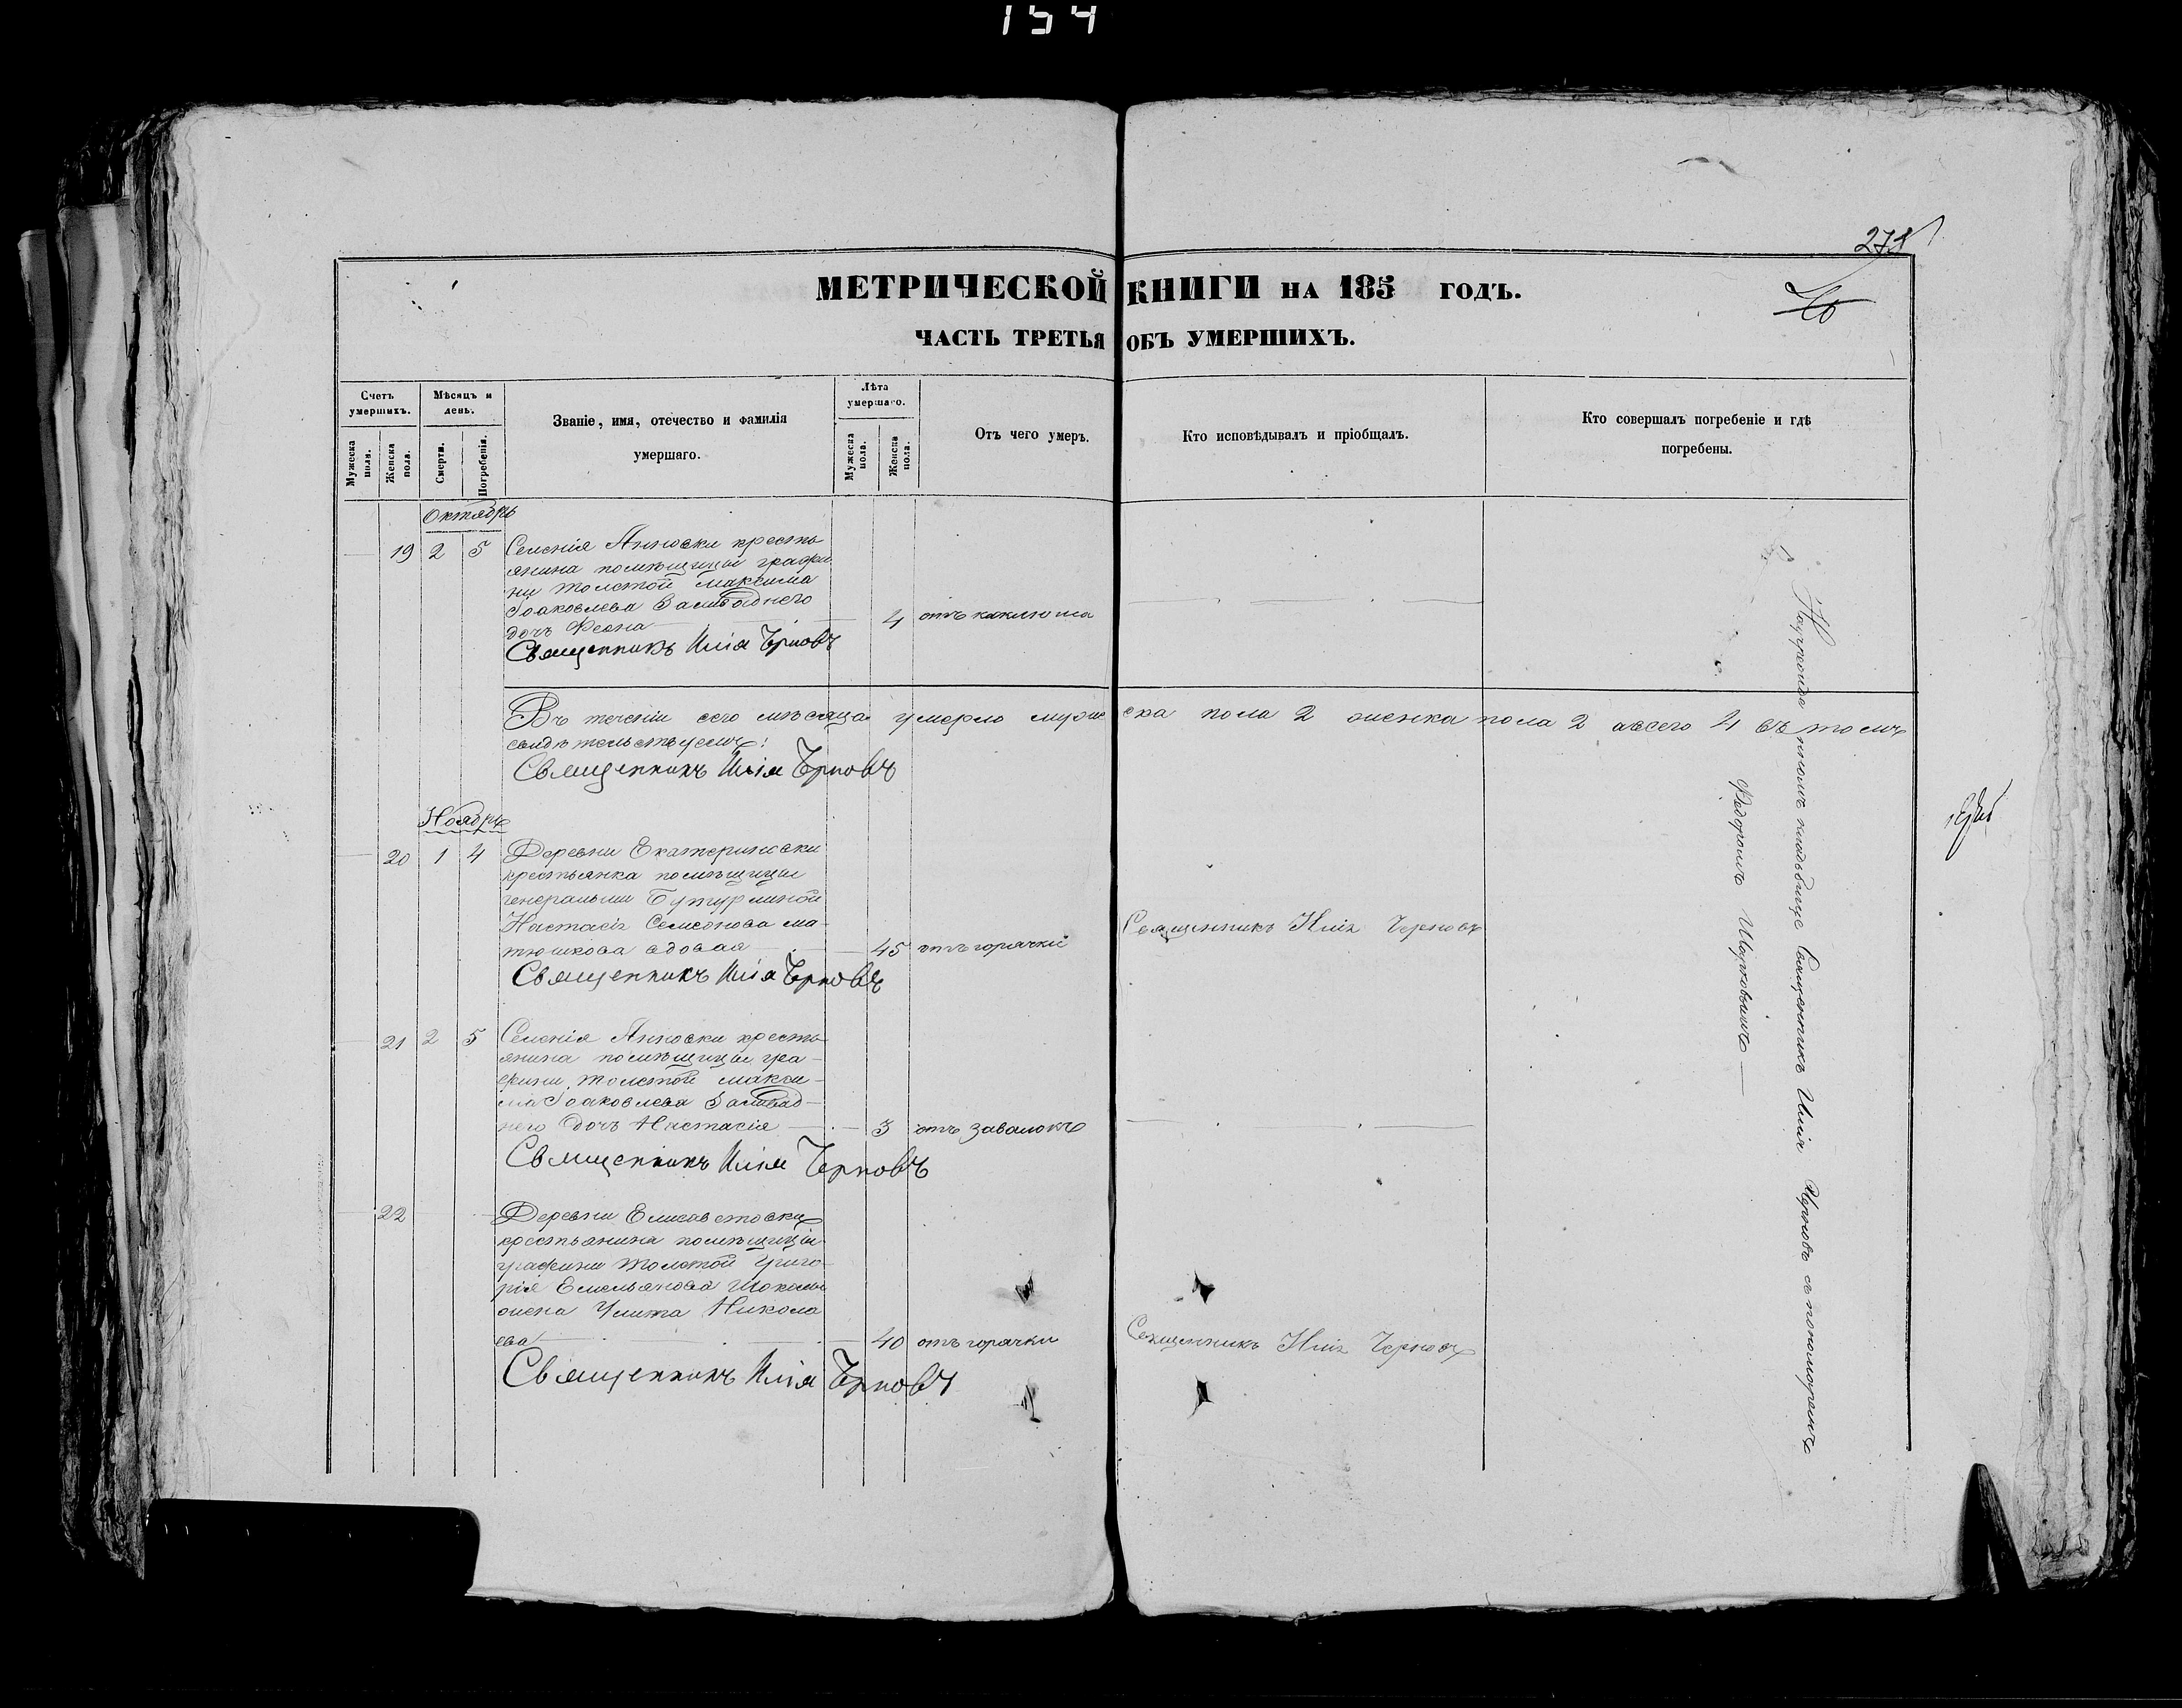 154
278
МЕТРИЧЕСКОЙ КНИГИ НА 185 ГОДЪ.
ЧАСТЬ ТРЕТЬЯ ОБЪ УМЕРШИХЪ.
Счетъ умершихъ.
Мужеска пола.
Женска пола.
Мѣсяцъ и день.
Смерти.
Погребенія.
Званіе, имя, отечество и фамилія
умершаго.
Лѣта умершаго.
Мужеска пола.
Женска пола.
Отъ чего умеръ.
Кто исповѣдывалъ и пріобщалъ.
Кто совершалъ погребеніе и гдѣ
погребены.
Октябрь
19 2 5 Селенія Анновки кресть
янина помѣщицы графи
ни Толстой Максима
Іоаковлева
дочь Феона 4 отъ коклюша
Священникъ Илія Чрновъ
Въ теченіи сего мѣсяца умерло мужеска пола 2 женска пола 2 а всего 4 въ томъ
свидѣтельствуемъ:
Священникъ Илія Чрновъ
Ноябрь
20 1 4 Деревни Екатериновки
крестьянка помѣщицы
генеральши Бутурлиной
Настасія Семенова ма-
тюшкова вдовая 45 отъ горячки
Священникъ Илія Черновъ
Священникъ Илія Чрновъ
21 2 5 Селенія Анновки кресть
янина помѣщицы гра-
фини Толстой макси-
ма Іоаковлева
него дочь Настасія 3 отъ заволокъ
Священникъ Илія Чернов
22 Деревни Елисаветовки
крестьянина помѣщицы
графини Толстой Григо
рія Емельянова
жена Улита Никола
ева 40 отъ горячки
Священникъ Илія Черновъ
Священникъ Илія Чрновъ
На кладбище Священникъ Илія Чрновъ съ пономаремъ
Федоромъ